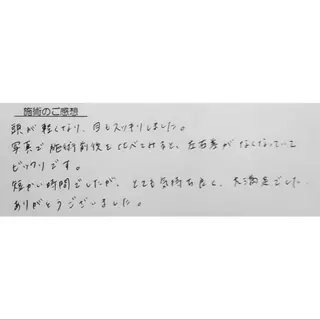 施術のご感想
頭が軽くなり、目もスッキリしました。
写真で施術前後を比べてみると、左右差がなくなっていて
ビックリです。
短かい時間でしたが、とても気持ち良く、大満足でした。
ありがとうございました。